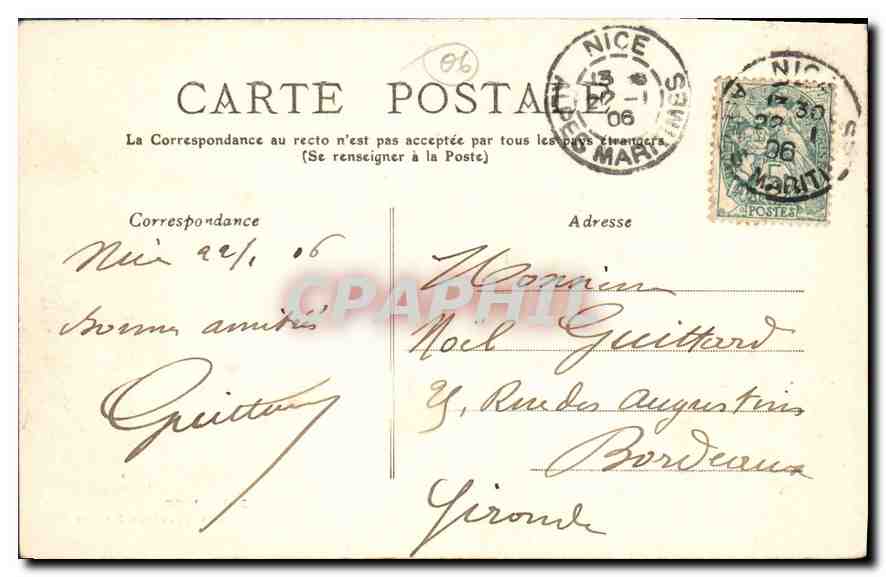 06
CARTE POSTALE
La Correspondance au recto n'est pas acceptée par tous les pays étrangers
(Se renseigner à la Poste)
NICE
22 - 1
06
ALPES MARITIMES
NICE
13 30
22 1
06
POSTES
Correspondance
Nice 22/1 06
Bonnes amitiés
Adresse
Monsieur
Noël Guittard
25, Rue des Augustins
Bordeaux
Gironde
CPAPHIL